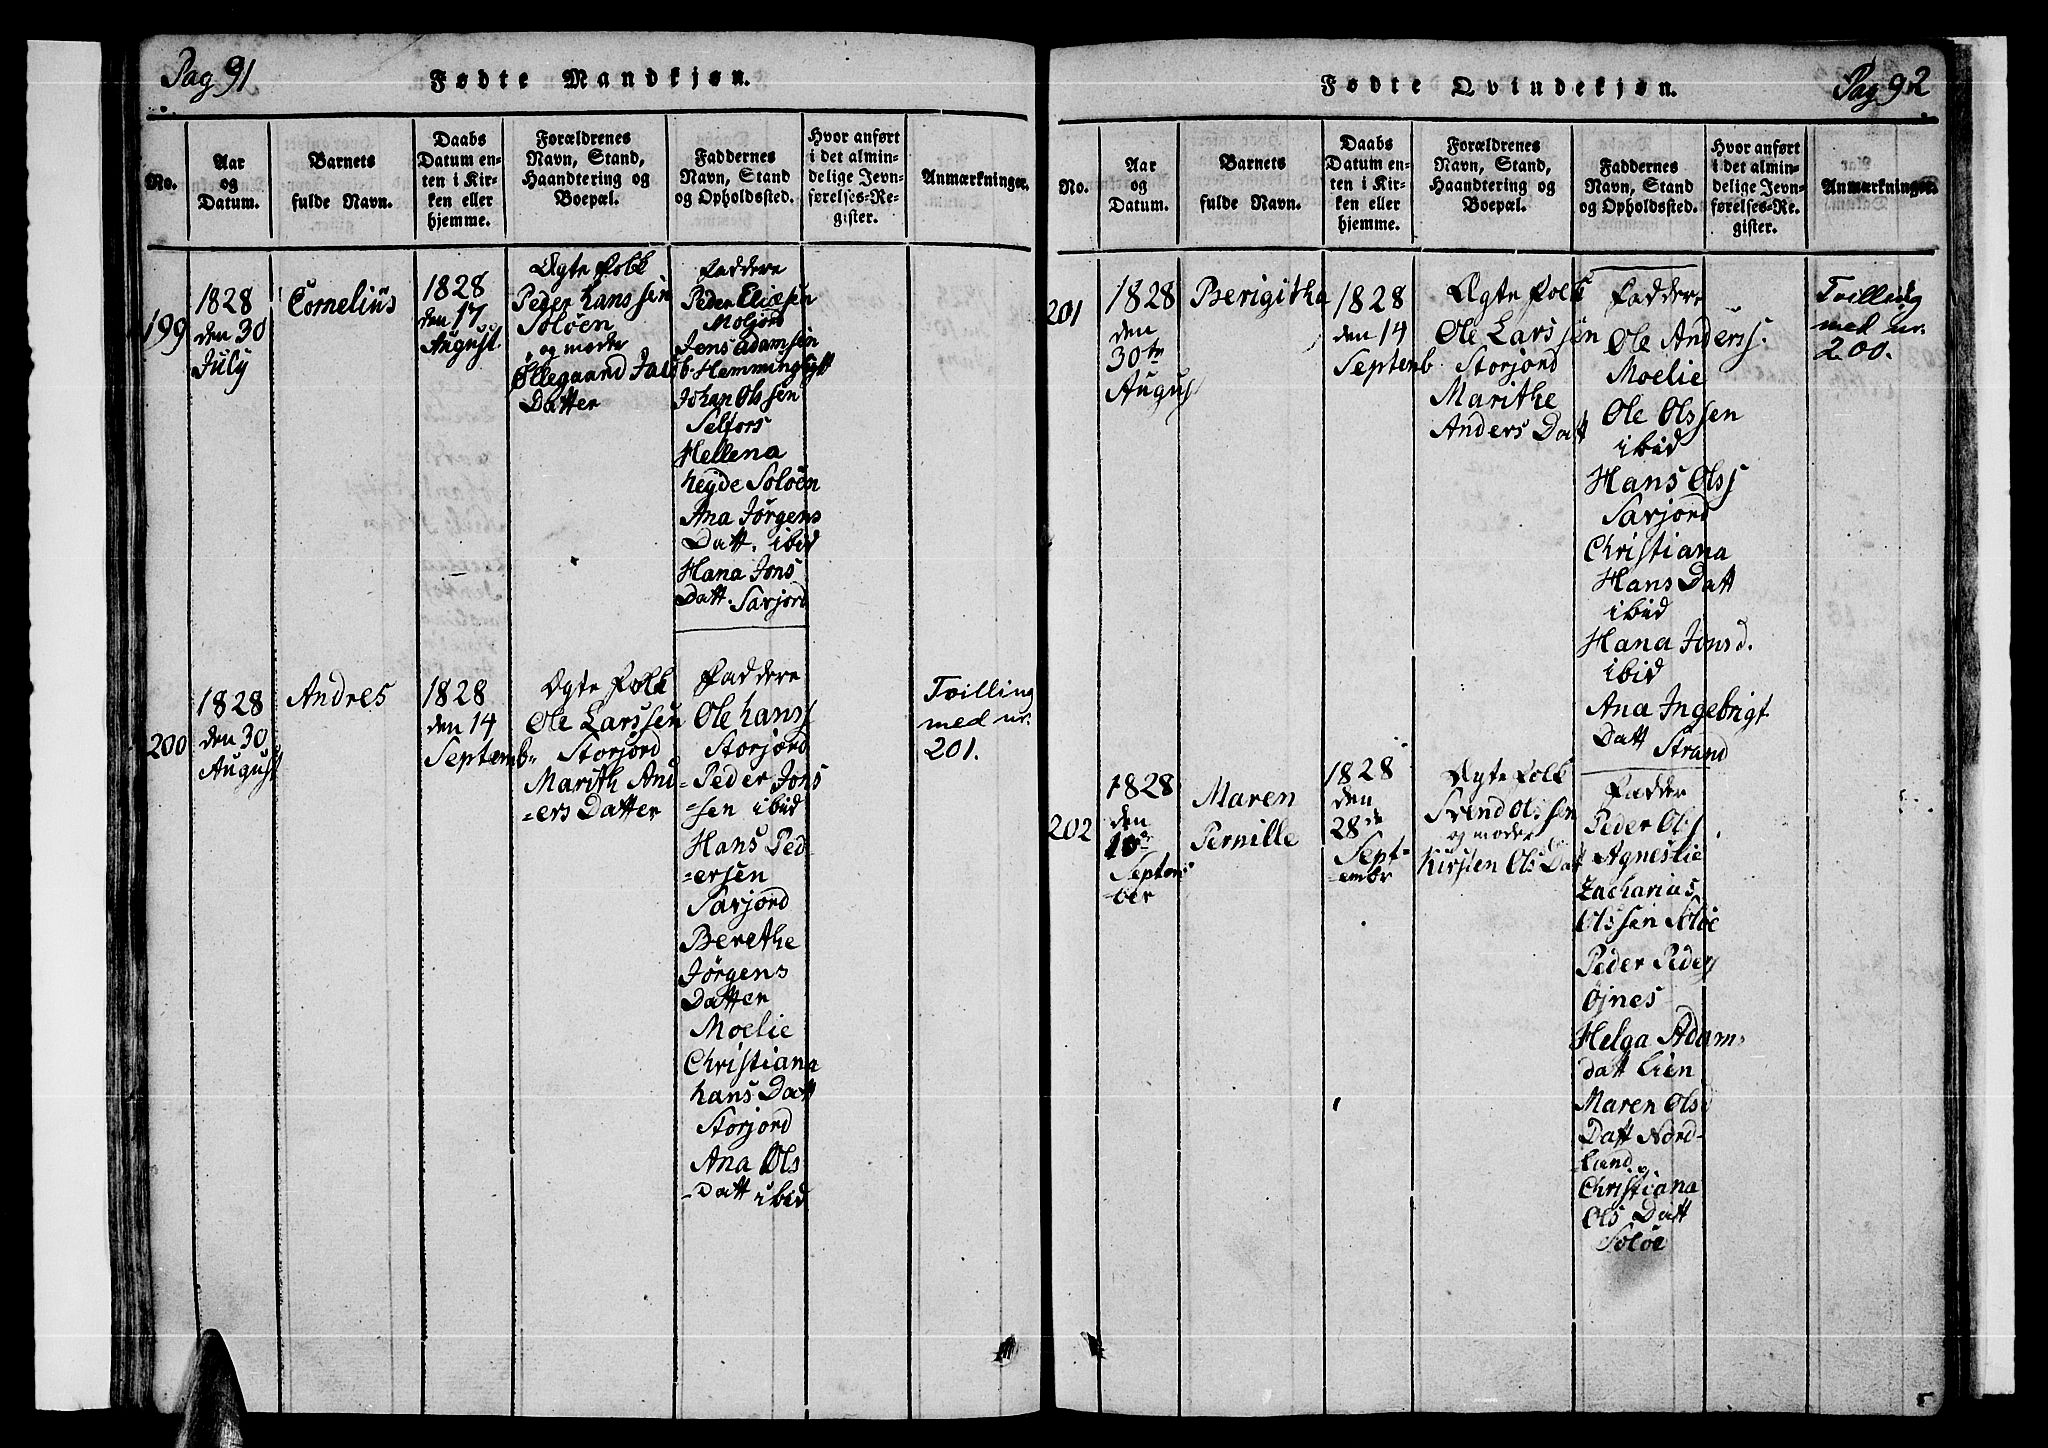 Pag 91
Fødte Mandkjøn.
No.
Aar
og
Datum.
Barnets
fulde Navn.
Daabs
Datum en-
ten i Kir-
ken eller
hjemme.
Forældrenes
Navn, Stand,
Haandtering og
Boepæl.
Faddernes
Navn, Stand
og Opholdssted.
Hvor anført
i det almin-
delige Jevn-
førelses-Re-
gister.
Anmærkninger.
199
1828
den 30
July
Cornelius
1828
den 17
August
Ægte Folk
Peder Hanssen
Soløen
og moder
Ellegaard
Datter
Faddere
Peder Eliæsen
Moljord
Jens Adamsen
Johan Olssen
Selfors
Hellena
hejde Soløen
Ana Jørgens
Datt. ibid
Hana Jons
Datt. Sarjord
200
1828
den 30
August
Andres
1828
den 14
Septemb-
Ægte Folk
Ole Larssen
Storjord
Marith And
=ers Datter
Faddere
Ole hans
Storjord
Peder Jons
=sen ibid
Hans Ped
=ersen
Sarjord
Berethe
Jørgens
Datter
Moelie
Christiana
hans Datt
Storjord
Ana Ols
=Datt ibid
Tvilling
med nr.
201.
Fødte Qvindekjøn.
Pag 92
No.
Aar
og
Datum.
Barnets
fulde Navn.
Daabs
Datum en-
ten i Kir-
ken eller
hjemme.
Forældrenes
Navn, Stand,
Haandtering og
Boepæl.
Faddernes
Navn, Stand
og Opholdssted.
Hvor anført
i det almin-
delige Jevn-
førelses-Re-
gister.
Anmærkninger.
201
1828
den
30te
August
Berigitha
1828
den 14
Septemb
Ægte Folk
Ole Larssen
Storjord
Marithe
Anders Datt
Faddere
Ole Anderss.
Moelie
Ole Olssen
ibid
Hans Olss
Sarjord
Christiana
Hans Datt
ibid
Hana Jonsd.
ibid
Ana Ingebrigt
Datt Strand
Tvilling
med nr.
200.
202
1828
den
Septem-
ber
Maren
Pernille
1828
den
28de
Sept-
=embr
Ægte Folk
Svend Olssen
og moder
Kirsten Ols Datt
Fadder
Peder Olss
Agneslie
Zacharias
Olssen Soløe
Peder Peders
Øjnes
Helga Adam-
datt Lien
Maren Ols
Datt Nord-
land
Christiana
Ols Datt
Soløe